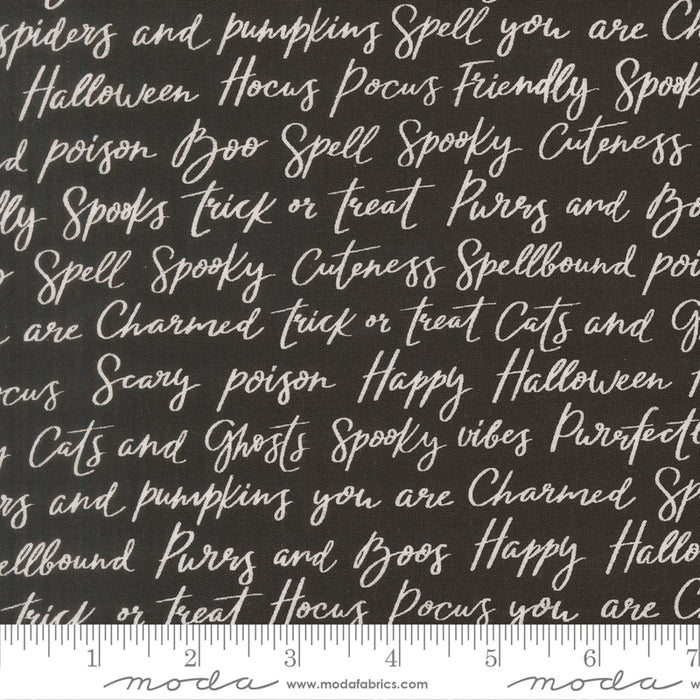 spiders and pumpkins Spell you are Ch
Halloween Hocus Pocus Friendly Spook
d poison Boo Spell Spooky Cuteness
lly Spooks trick or treat Purrs and Bo
Spell Spooky Cuteness Spellbound poi
are Charmed trick or treat Cats and G
ocus Scary poison Happy Halloween
y Cats and Ghosts Spooky vibes Purrfect
rs and pumpkins you are Charmed Sp
ellbound Purrs and Boos Happy Hallo
trick or treat Hocus Pocus you are C
1 2 3 4 5 6 7
moda www.modafabrics.com moda